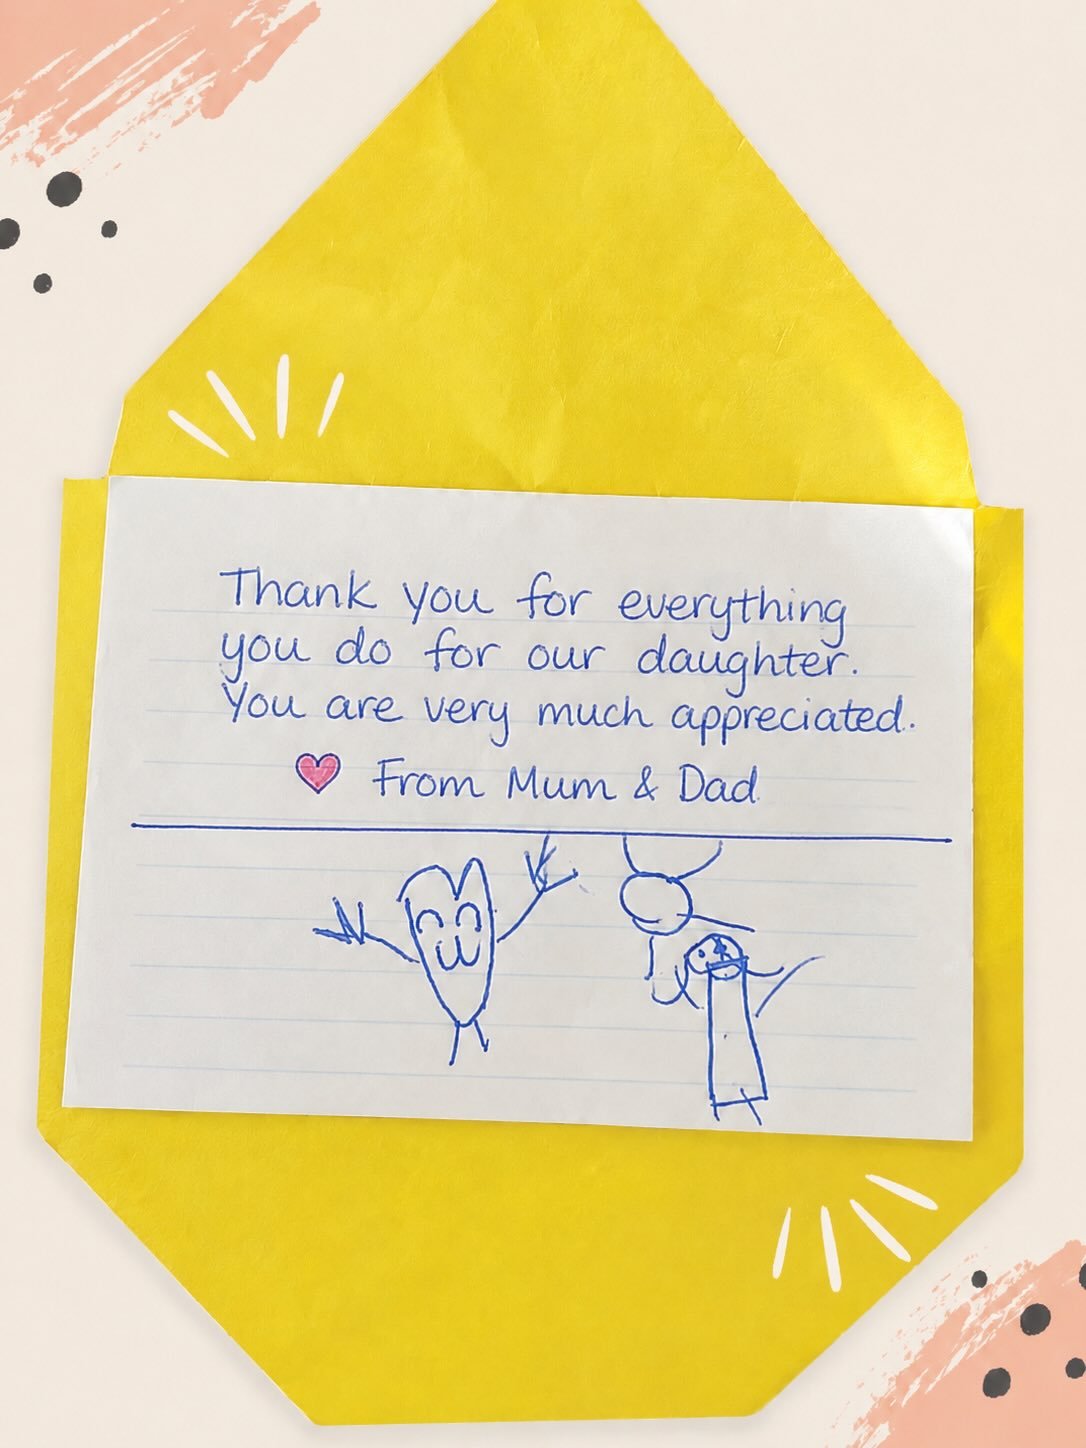 Thank you for everything
you do for our daughter.
You are very much appreciated.
From Mum & Dad